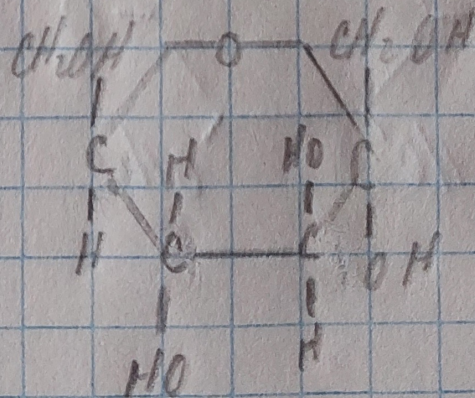 CH₂OH O CH₂OH
C H HO C
H C C OH
HO H